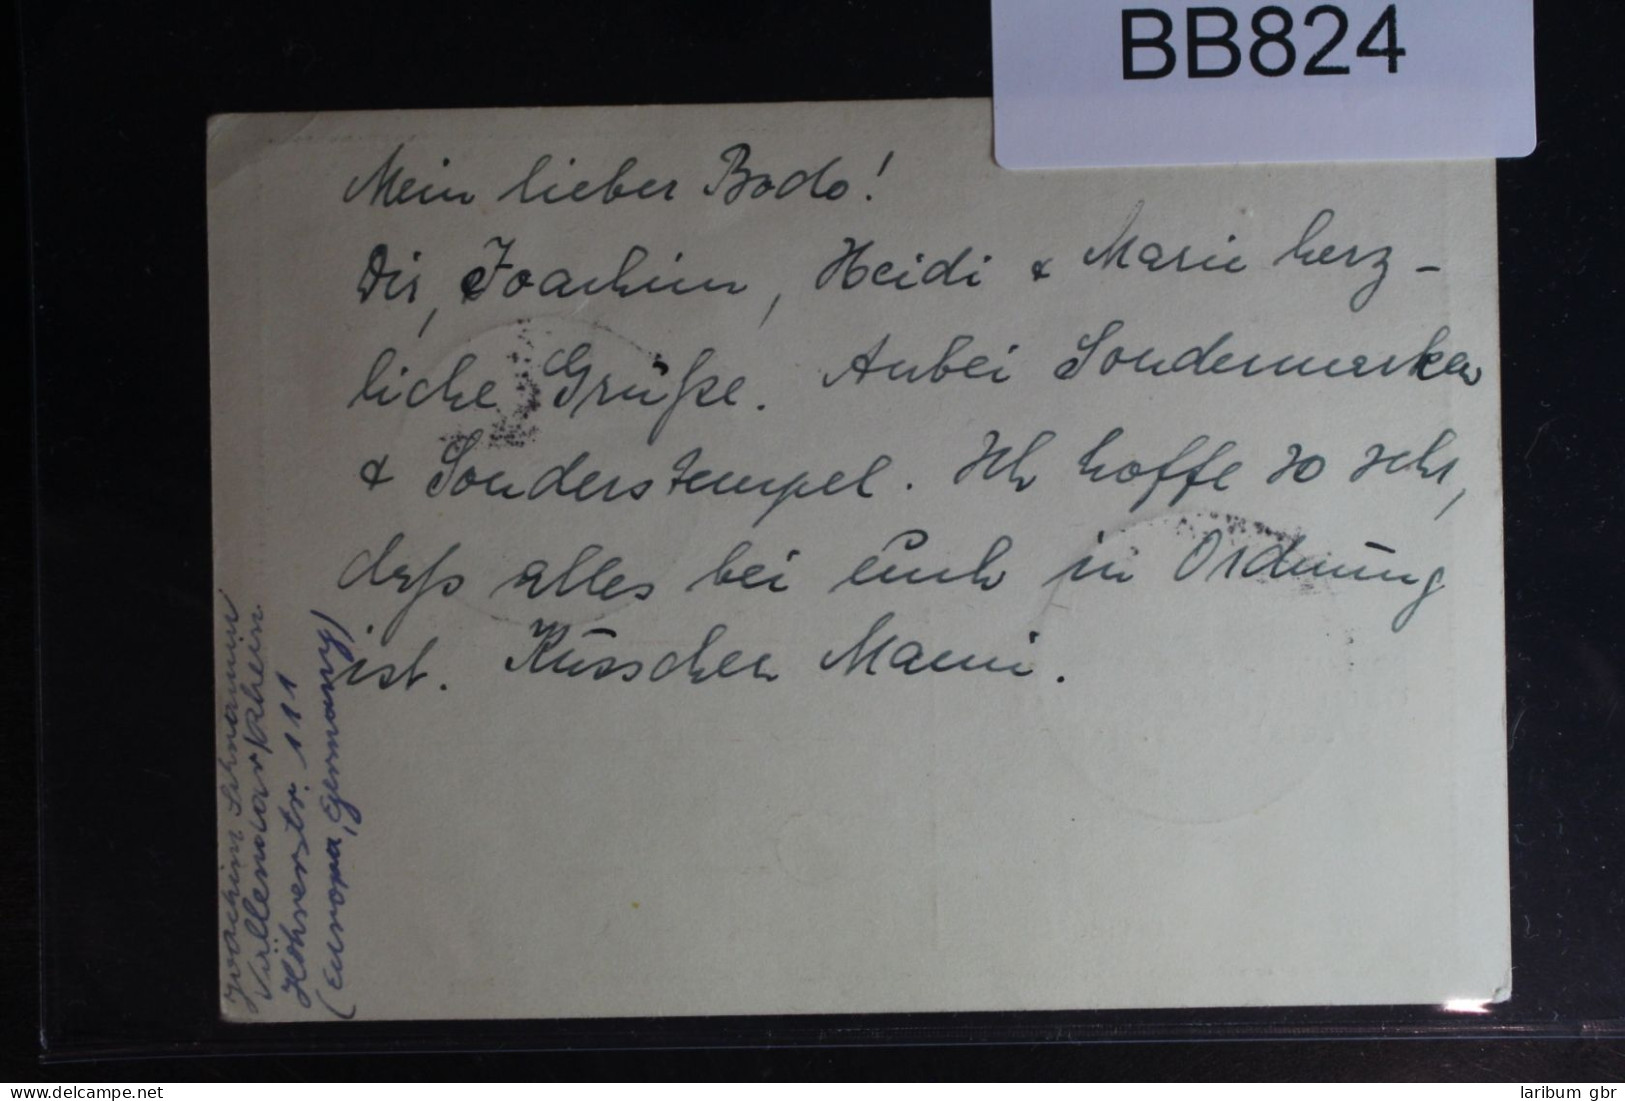 BB824
Mein lieber Bodo!
Dir, Joachim, Heidi & Marie herz-
liche Grüße. Anbei Sondermarken
& Sonderstempel. Ich hoffe so sehr,
daß alles bei Euch in Ordnung
ist. Küsschen Mami.
Joachim Lehmann
Vallendar/Rhein
Höhrerstr. 111
(Europa, Germany)
Posted for free on
delcampe.net
laribum gbr